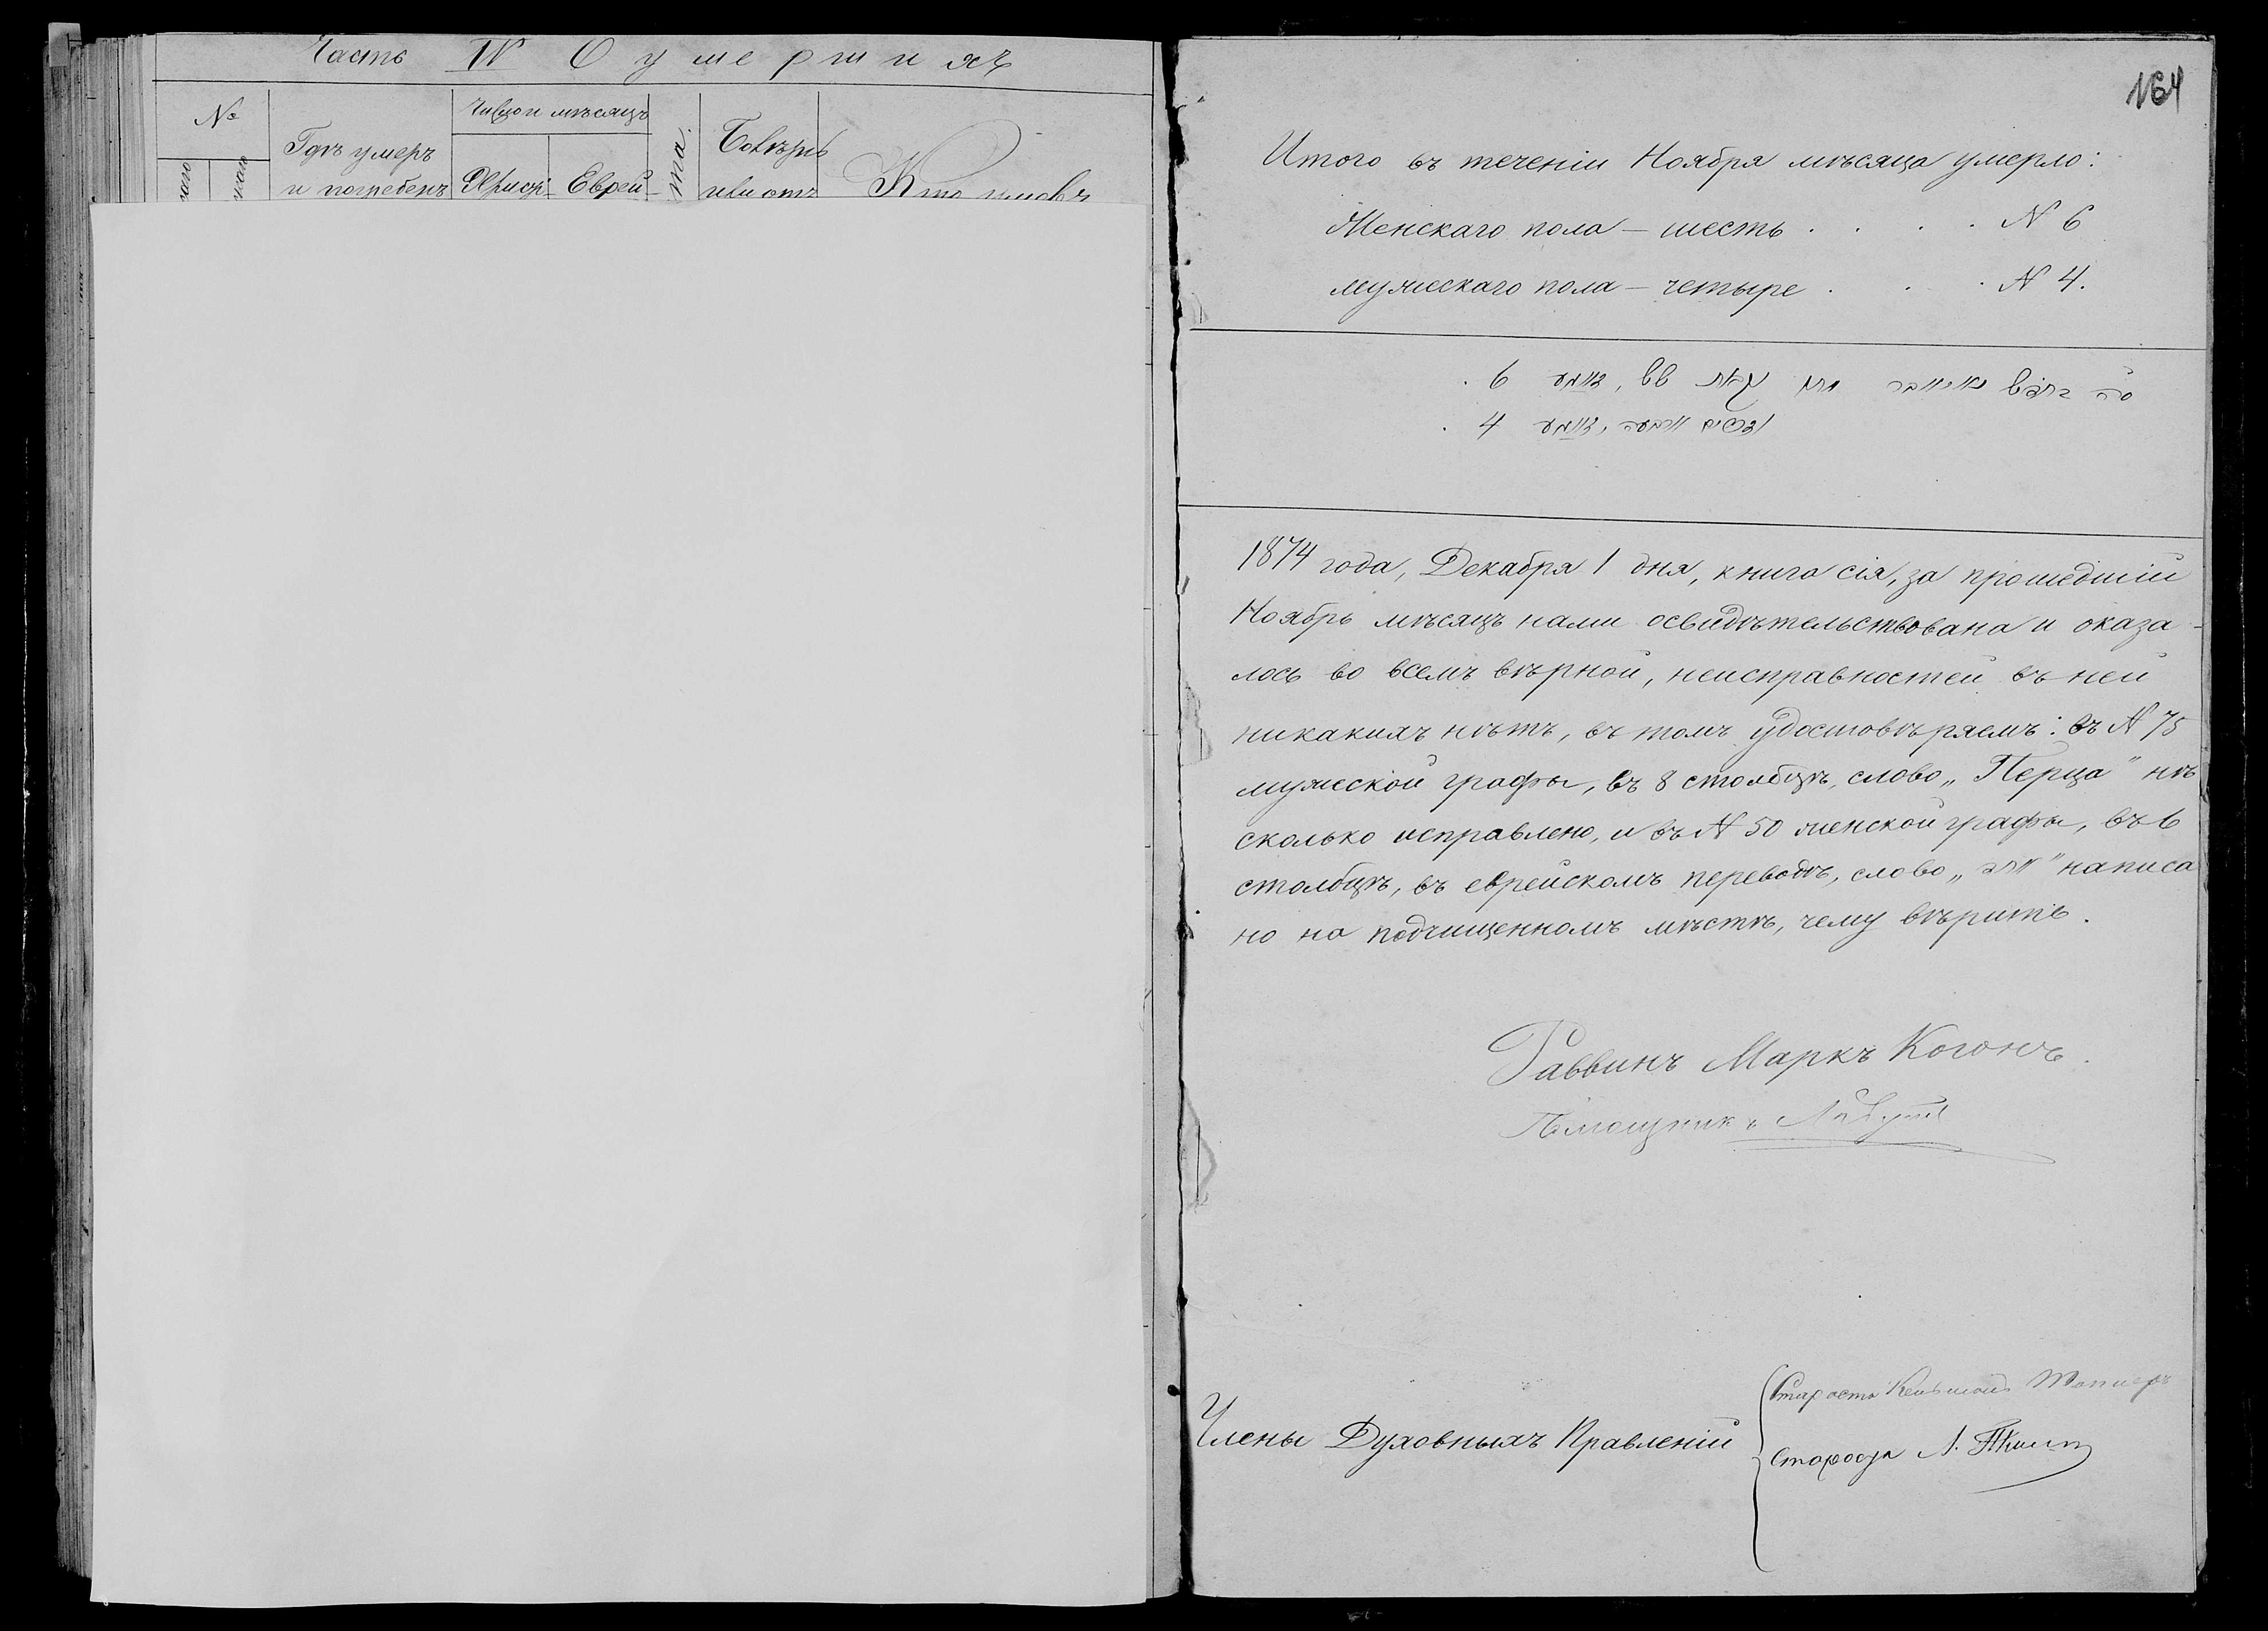 Часть IV О умершихъ
№
Гдѣ умеръ
и погребенъ
Число и мѣсяцъ
Христі-
Еврей-
Болѣзнь
или отъ
Кто умеръ
164
Итого въ теченіи Ноября мѣсяца умерло:
Женскаго пола — шесть . . . . N 6
мужескаго пола — четыре . . . N 4.
6
4
1874 года, Декабря 1 дня, книга сія, за прошедшій
Ноябрь мѣсяцъ нами освидѣтельствована и оказа-
лось во всемъ вѣрной, неисправностей въ ней
никакихъ нѣтъ, въ томъ удостовѣряемъ: въ N 75
мужеской графы, въ 8 столбцѣ, слово „Перца" нѣ
сколько исправлено, и въ N 50 женской графы, въ 6
столбцѣ, въ еврейскомъ переводѣ, слово написа
но на подчищенномъ мѣстѣ, чему вѣрить.
Раввинъ Маркъ Когонъ.
Помощникъ
Члены Духовныхъ Правленій
Староста
Староста Л.